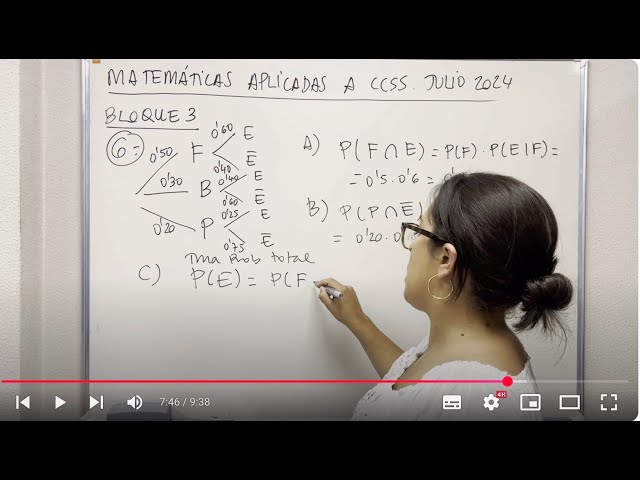 MATEMÁTICAS APLICADAS A CCSS. JULIO 2024
BLOQUE 3
6=
0'50 F 0'60 E
0'40 Ē
0'30 B 0'40 E
0'60 Ē
0'20 P 0'25 E
0'75 Ē
A) P(F∩E)=P(F)·P(E|F)=
=0'5·0'6=
B) P(P∩Ē)
=0'20·0'
C) Tma Prob total
P(E)= P(F
7:46 / 9:38
4K